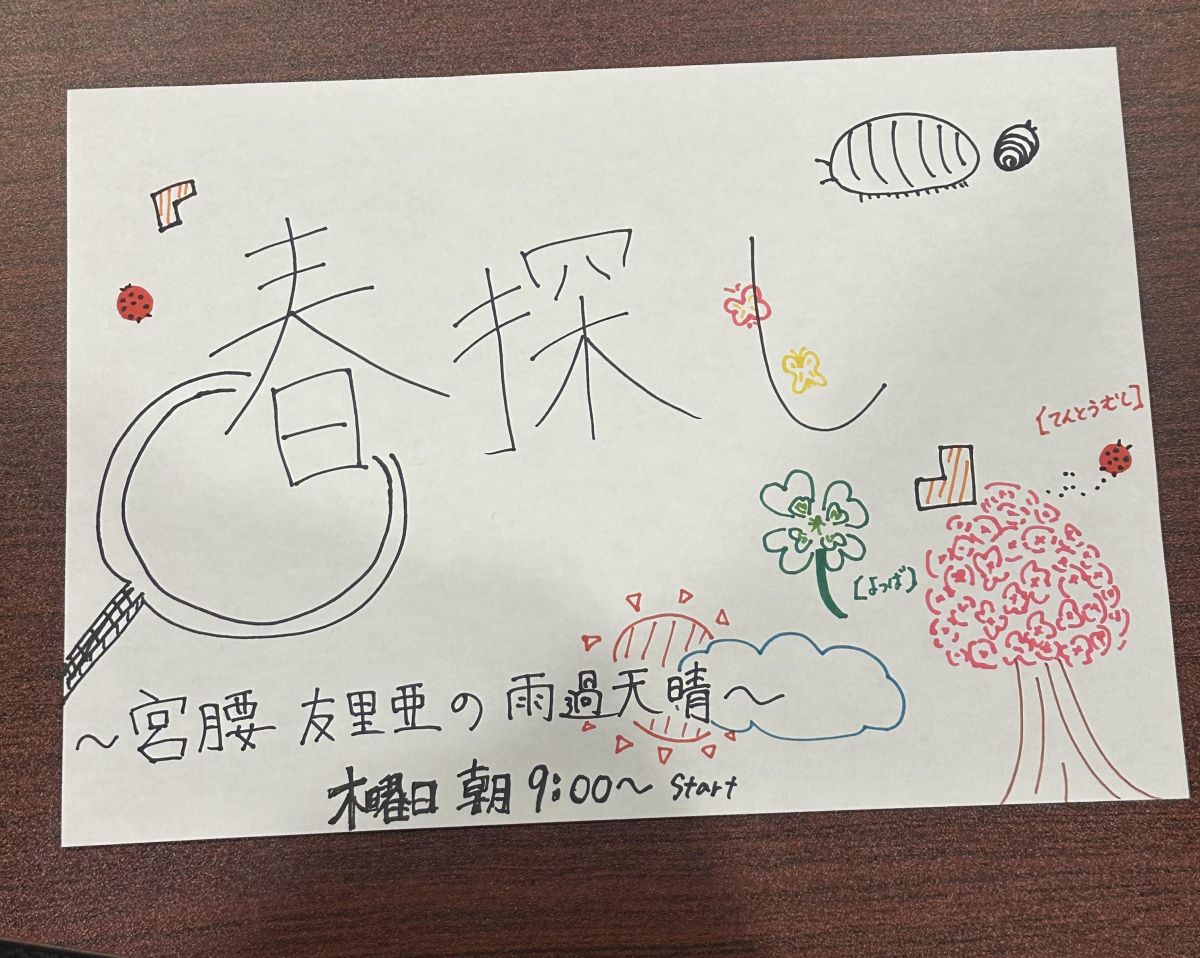 春探し
[てんとうむし]
[よつば]
～宮腰 友里亜の 雨過天晴～
木曜日 朝 9:00～ Start